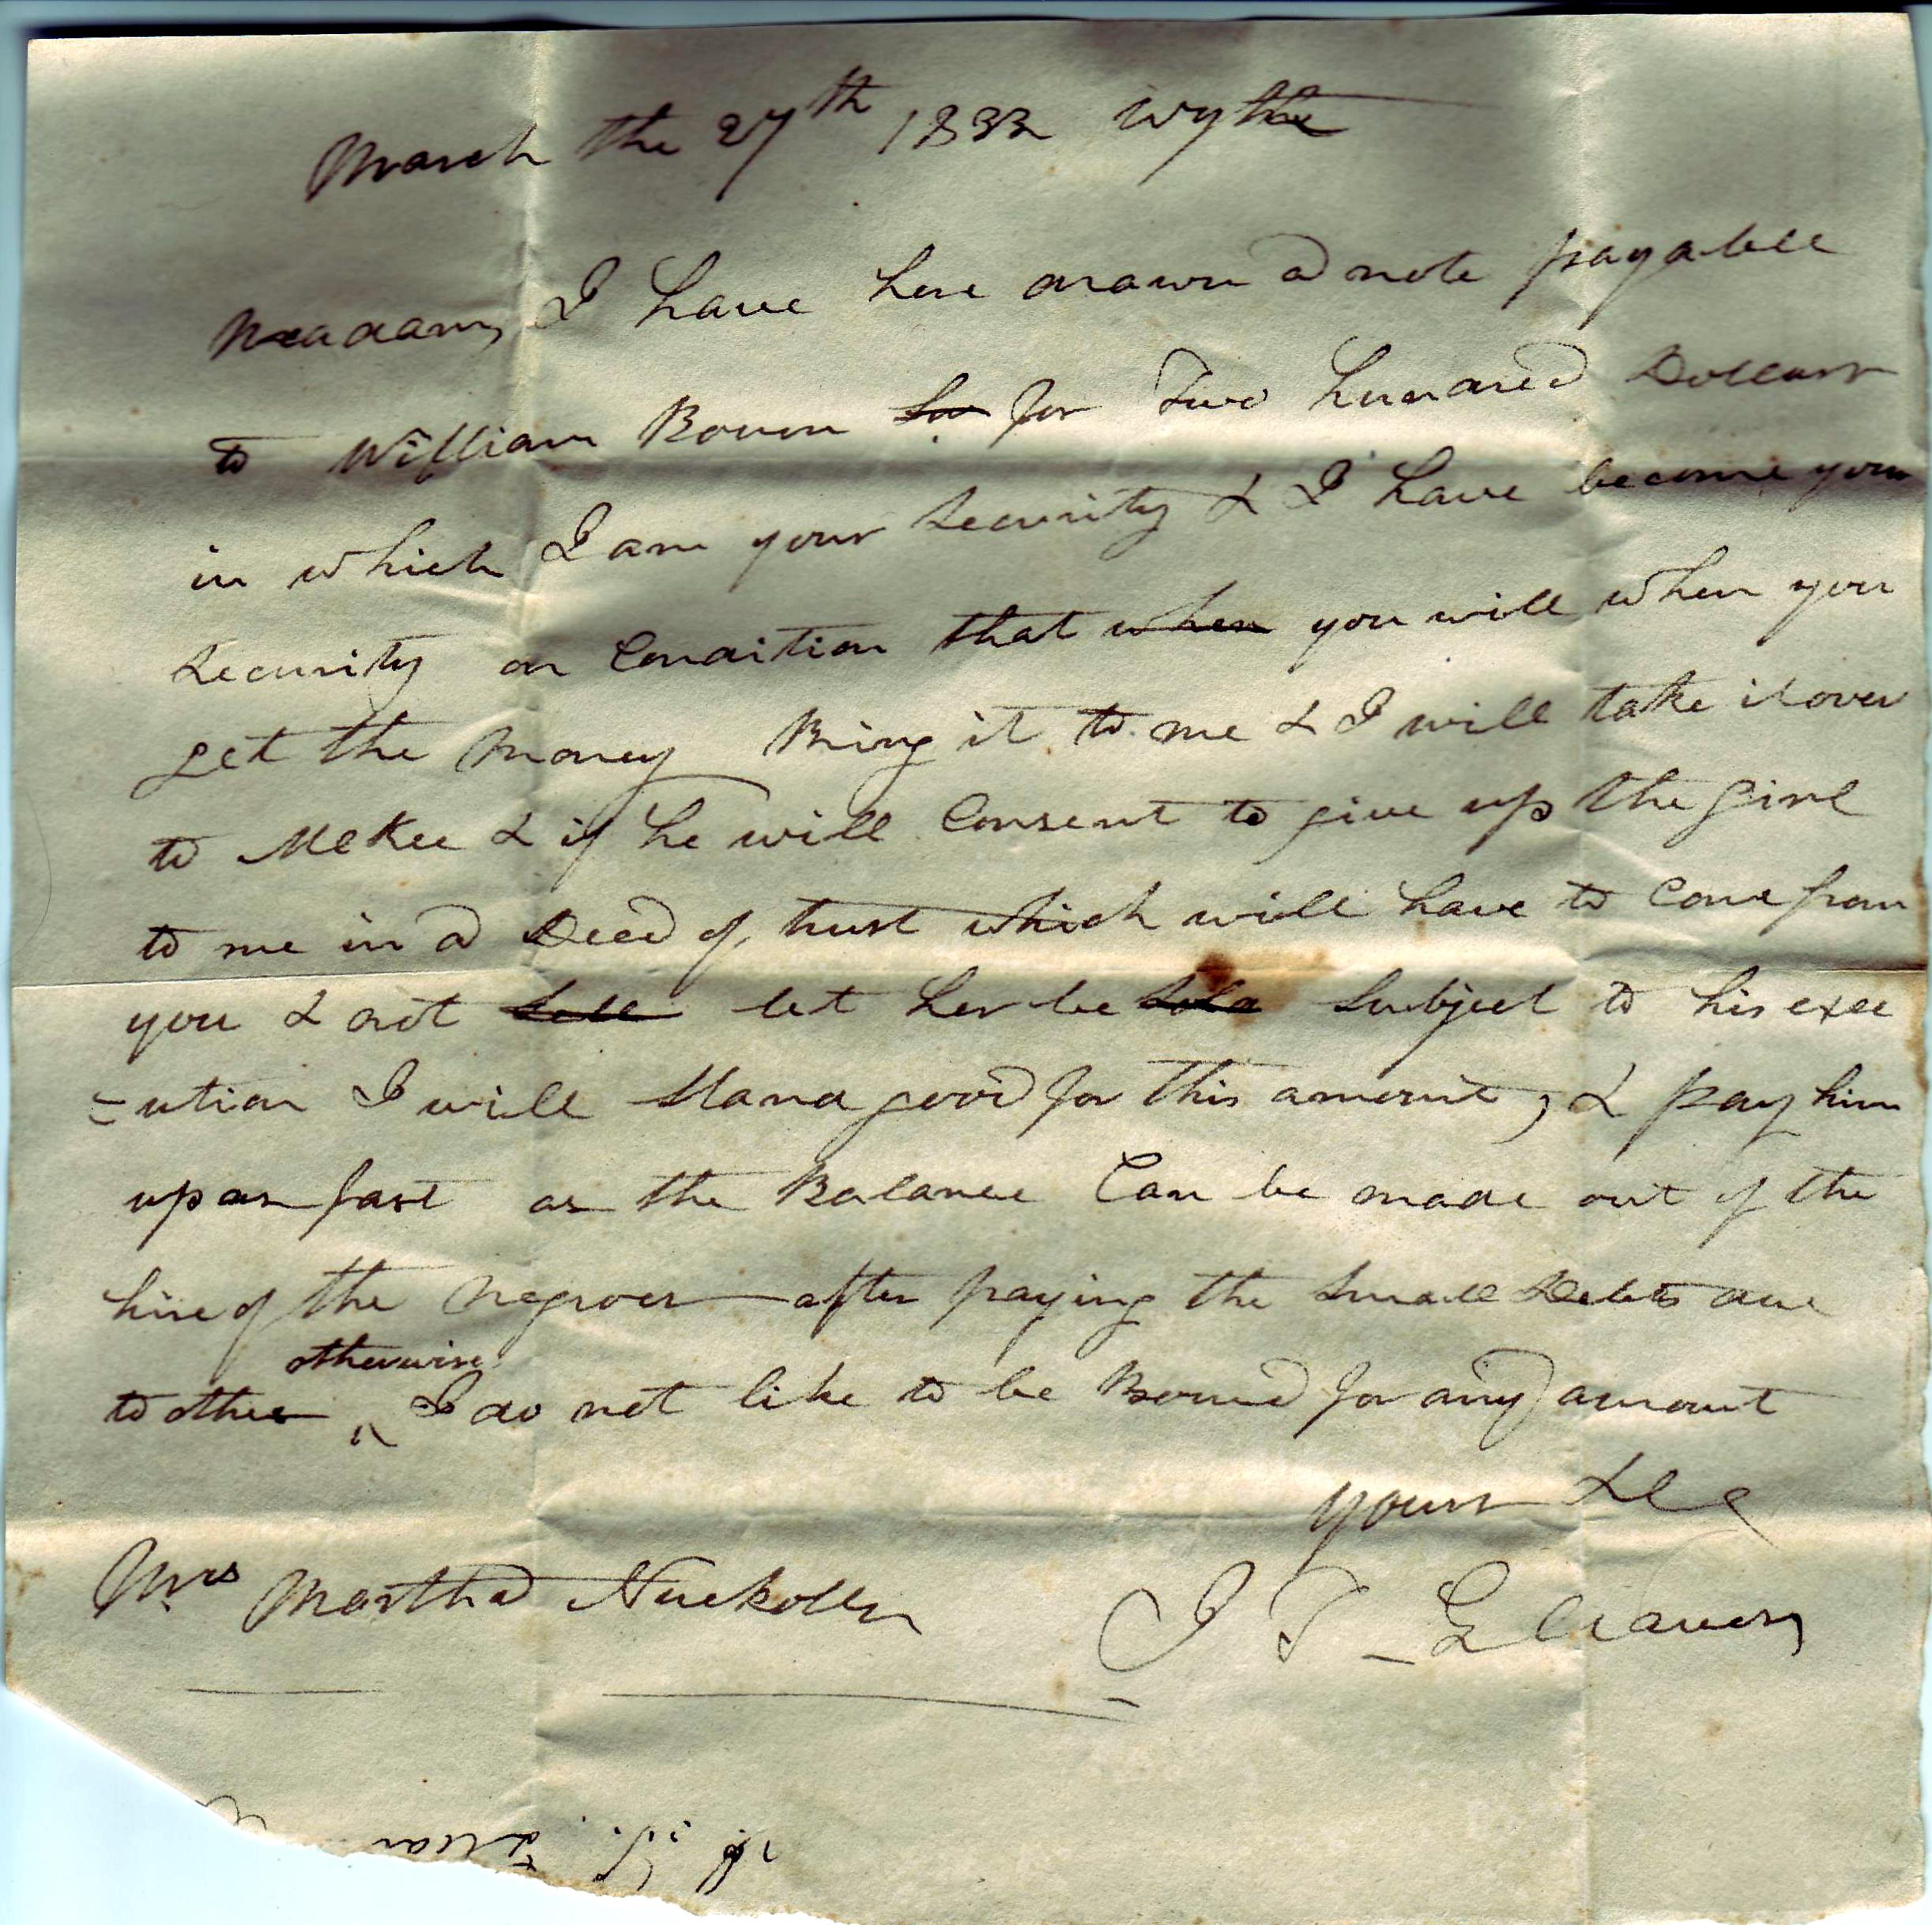 March the 27th 1832 Wythe
Madam, I have here drawn a note payable
to William Bourn for Two hundred Dollars
in which I am your Security & I have become your
Security on Condition that when you will when you
get the Money Bring it to me & I will take it over
to McKee & if he will Consent to give up the girl
to me in a Deed of trust which will have to Come from
you & not let her be sold Subject to his exec
=ution I will Stand good for this amount, & pay him
up as fast as the Balance Can be made out of the
hire of the Negroes after paying the Small Debts due
otherwise
to others I do not like to be Bound for any amount
yours &c
Mrs Martha Nuckolls J T Gleaves